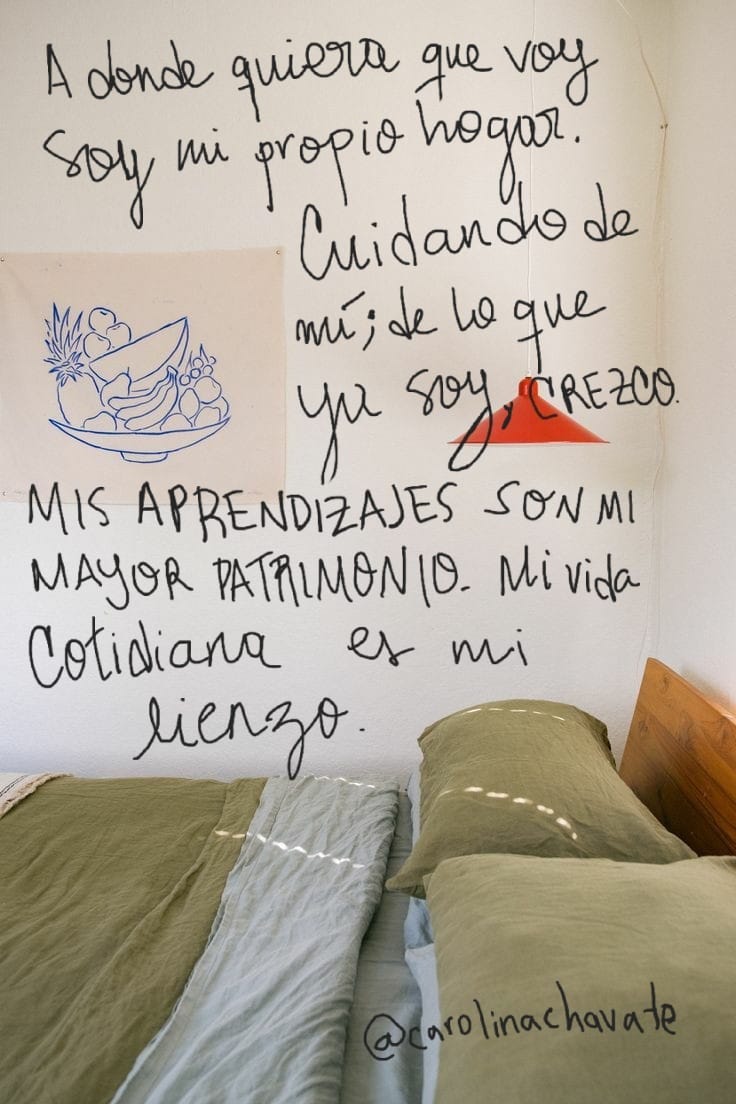 A donde quiera que voy
soy mi propio hogar.
Cuidando de
mí; de lo que
ya soy, CREZCO.
MIS APRENDIZAJES SON MI
MAYOR PATRIMONIO. Mi vida
cotidiana es mi
lienzo.
@carolinachavate